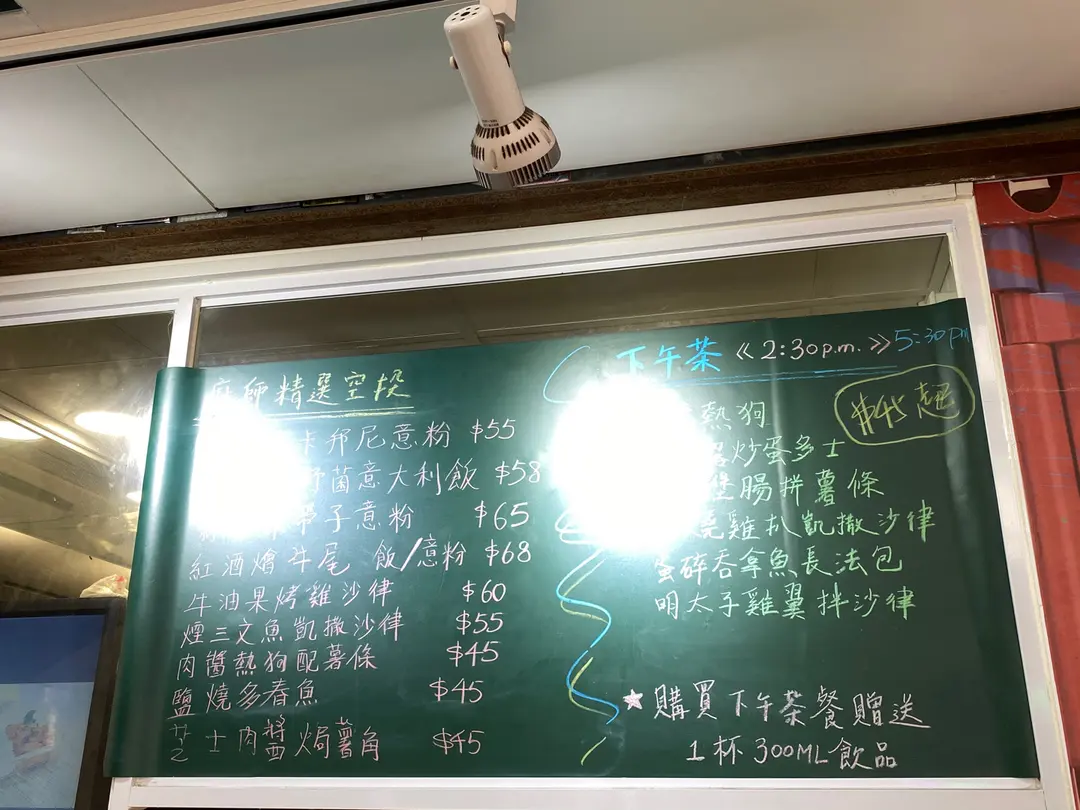 廚師精選空投
卡邦尼意粉 $55
野菌意大利飯 $58
帶子意粉 $65
紅酒燴牛尾 飯/意粉 $68
牛油果烤雞沙律 $60
煙三文魚凱撒沙律 $55
肉醬熱狗配薯條 $45
鹽燒多春魚 $45
芝士肉醬焗薯角 $45
下午茶 《2:30p.m.》5:30pm
$45起
熱狗
炒蛋多士
堡腸拼薯條
燒雞扒凱撒沙律
蛋碎吞拿魚長法包
明太子雞翼拌沙律
★購買下午茶餐贈送
1杯300ML飲品